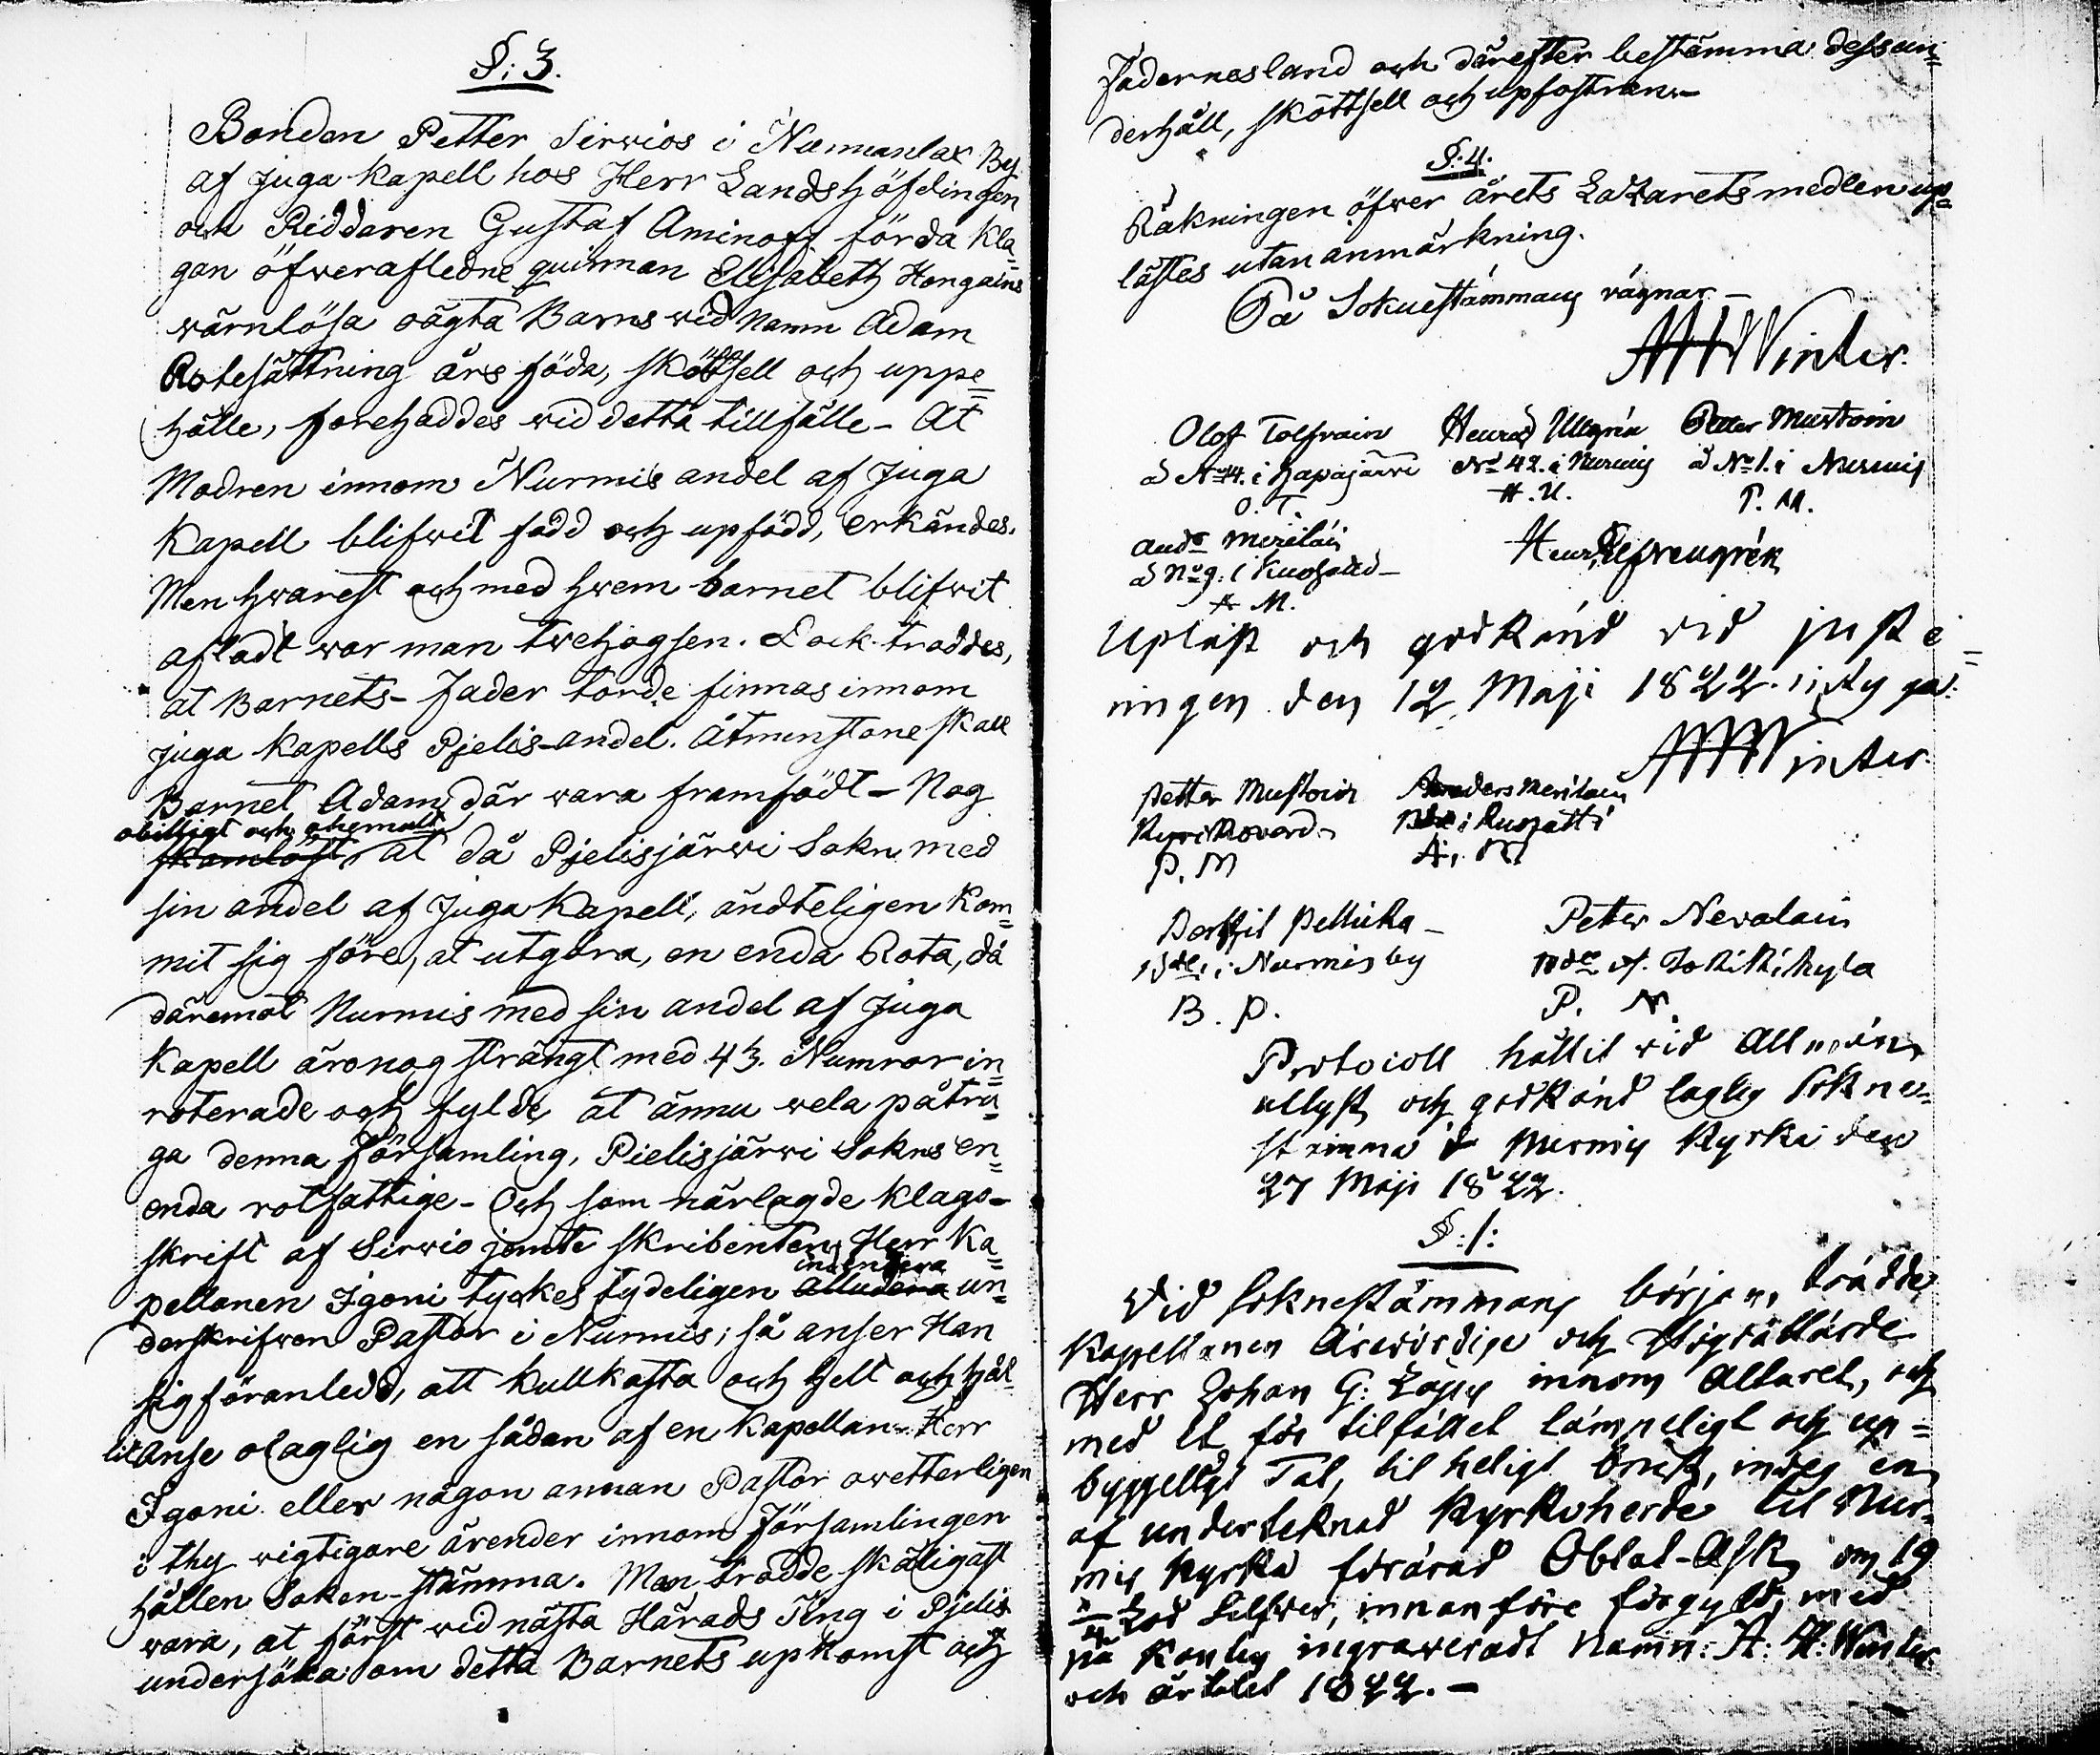 §: 3.
Bonden Petter Sirvios i Nunnanlax By
af Juga Kapell hos Herr Landshöfdingen
och Riddaren Gustaf Aminoff förda kla=
gan öfwer afledne quinnan Elisabeth Hongains
wärnlösa oägta Barns wid namn Adam
Rotesättning års föda, skötsell och uppe=
hälle, forehaddes wid detta tillfälle - At
Modren innom Nurmis andel af Juga
Kapell blifwit född och upfödd, erkändes.
Men hwarest och med hwem barnet blifwit
afladt war man twehogsen. Dock troddes,
at Barnets - Fader torde finnas innom
Juga Kapells Pjelis-andel. Åtminstone skall
Barnet Adam, där wara framfödt - Nog
obilligt och ohemult
skamlöst, at då Pjelisjärwi Sokn med
sin andel af Juga Kapell, ändteligen kom=
mit sig före, at utgöra, en enda Rota, då
däremot Nurmis med sin andel af Juga
Kapell äro nog strängt med 43. Numror in=
roterade och fylde, at ännu wela påtru=
ga denna Församling, Pielisjärwi Sokns en=
enda rotfattige - Och som närlagde klago-
skrift af Sirwio jemte skribenten, Herr Ka=
pellanen Igoni tyckes tydeligen alludera un=
derskrifwen Pastor i Nurmis; så anser Han
sig föranledd, att kullkasta och helt och hål=
lit Anse olaglig en sådan af en Kapellan Herr
Igoni eller någon annan Pastor owetterligen
i thy wigtigare ärender innom Församlingen
hållen Soken-stämma. Man trodde skäligast
wara, at först wid nästa Härads Ting i Pjelis
undersöka om detta Barnets upkomst och
Fadernesland och därefter bestämma dess un=
derhåll, sköttsell och upfostran.-
§. 4.
Räkningen öfwer årets Lazaretsmedlen up=
lästes utan anmärkning.
På Soknestämmans vägnar -
Winter.
Olof Tolfvain Henric Ullgrén Petter Mustoin
å No 14. i Hapajärvi No 42. i Nurmis å No 1. i Nurmis
O. T. H. U. P. M.
And Meriläin Henr.
å No 9. i Kuohatti -
A M.
Upläst och godkänd vid juste=
ringen den 12 Maji 1822. intyga:
Winter.
Petter Mustoin Anders Meriläin
Kyrkovärd i Kuohatti
P. M A. M.
Bertil Pellicka - Petter Nevalain
i Nurmis by
B. P. P. N.
Protocoll hållit vid Allmän
utlyst och godkänd laglig Sokne=
stämma i Nurmis Kyrka den
27 Maji 1822.
§: 1:
Vid Soknestämmans början, trädde
Kapellanen Ärewördige och Högvällärde
Herr Johan G: innom Altaret, och
med et för tilfället lämpeligt och up=
byggeligt Tal, til heligt bruk, en
af undertecknad Kyrkoherde til Nur=
mis Kyrka förärad Oblat-Ask om 19
lod Silfwer, innanföre förgyld, med
på ingraweradt Namn: A: H: Winter
och årtalet 1822. -